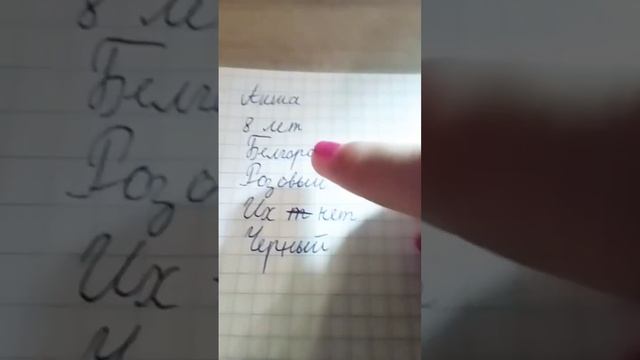 Анша
8 лет
Белгоро
Розовый
Их нет
Черный